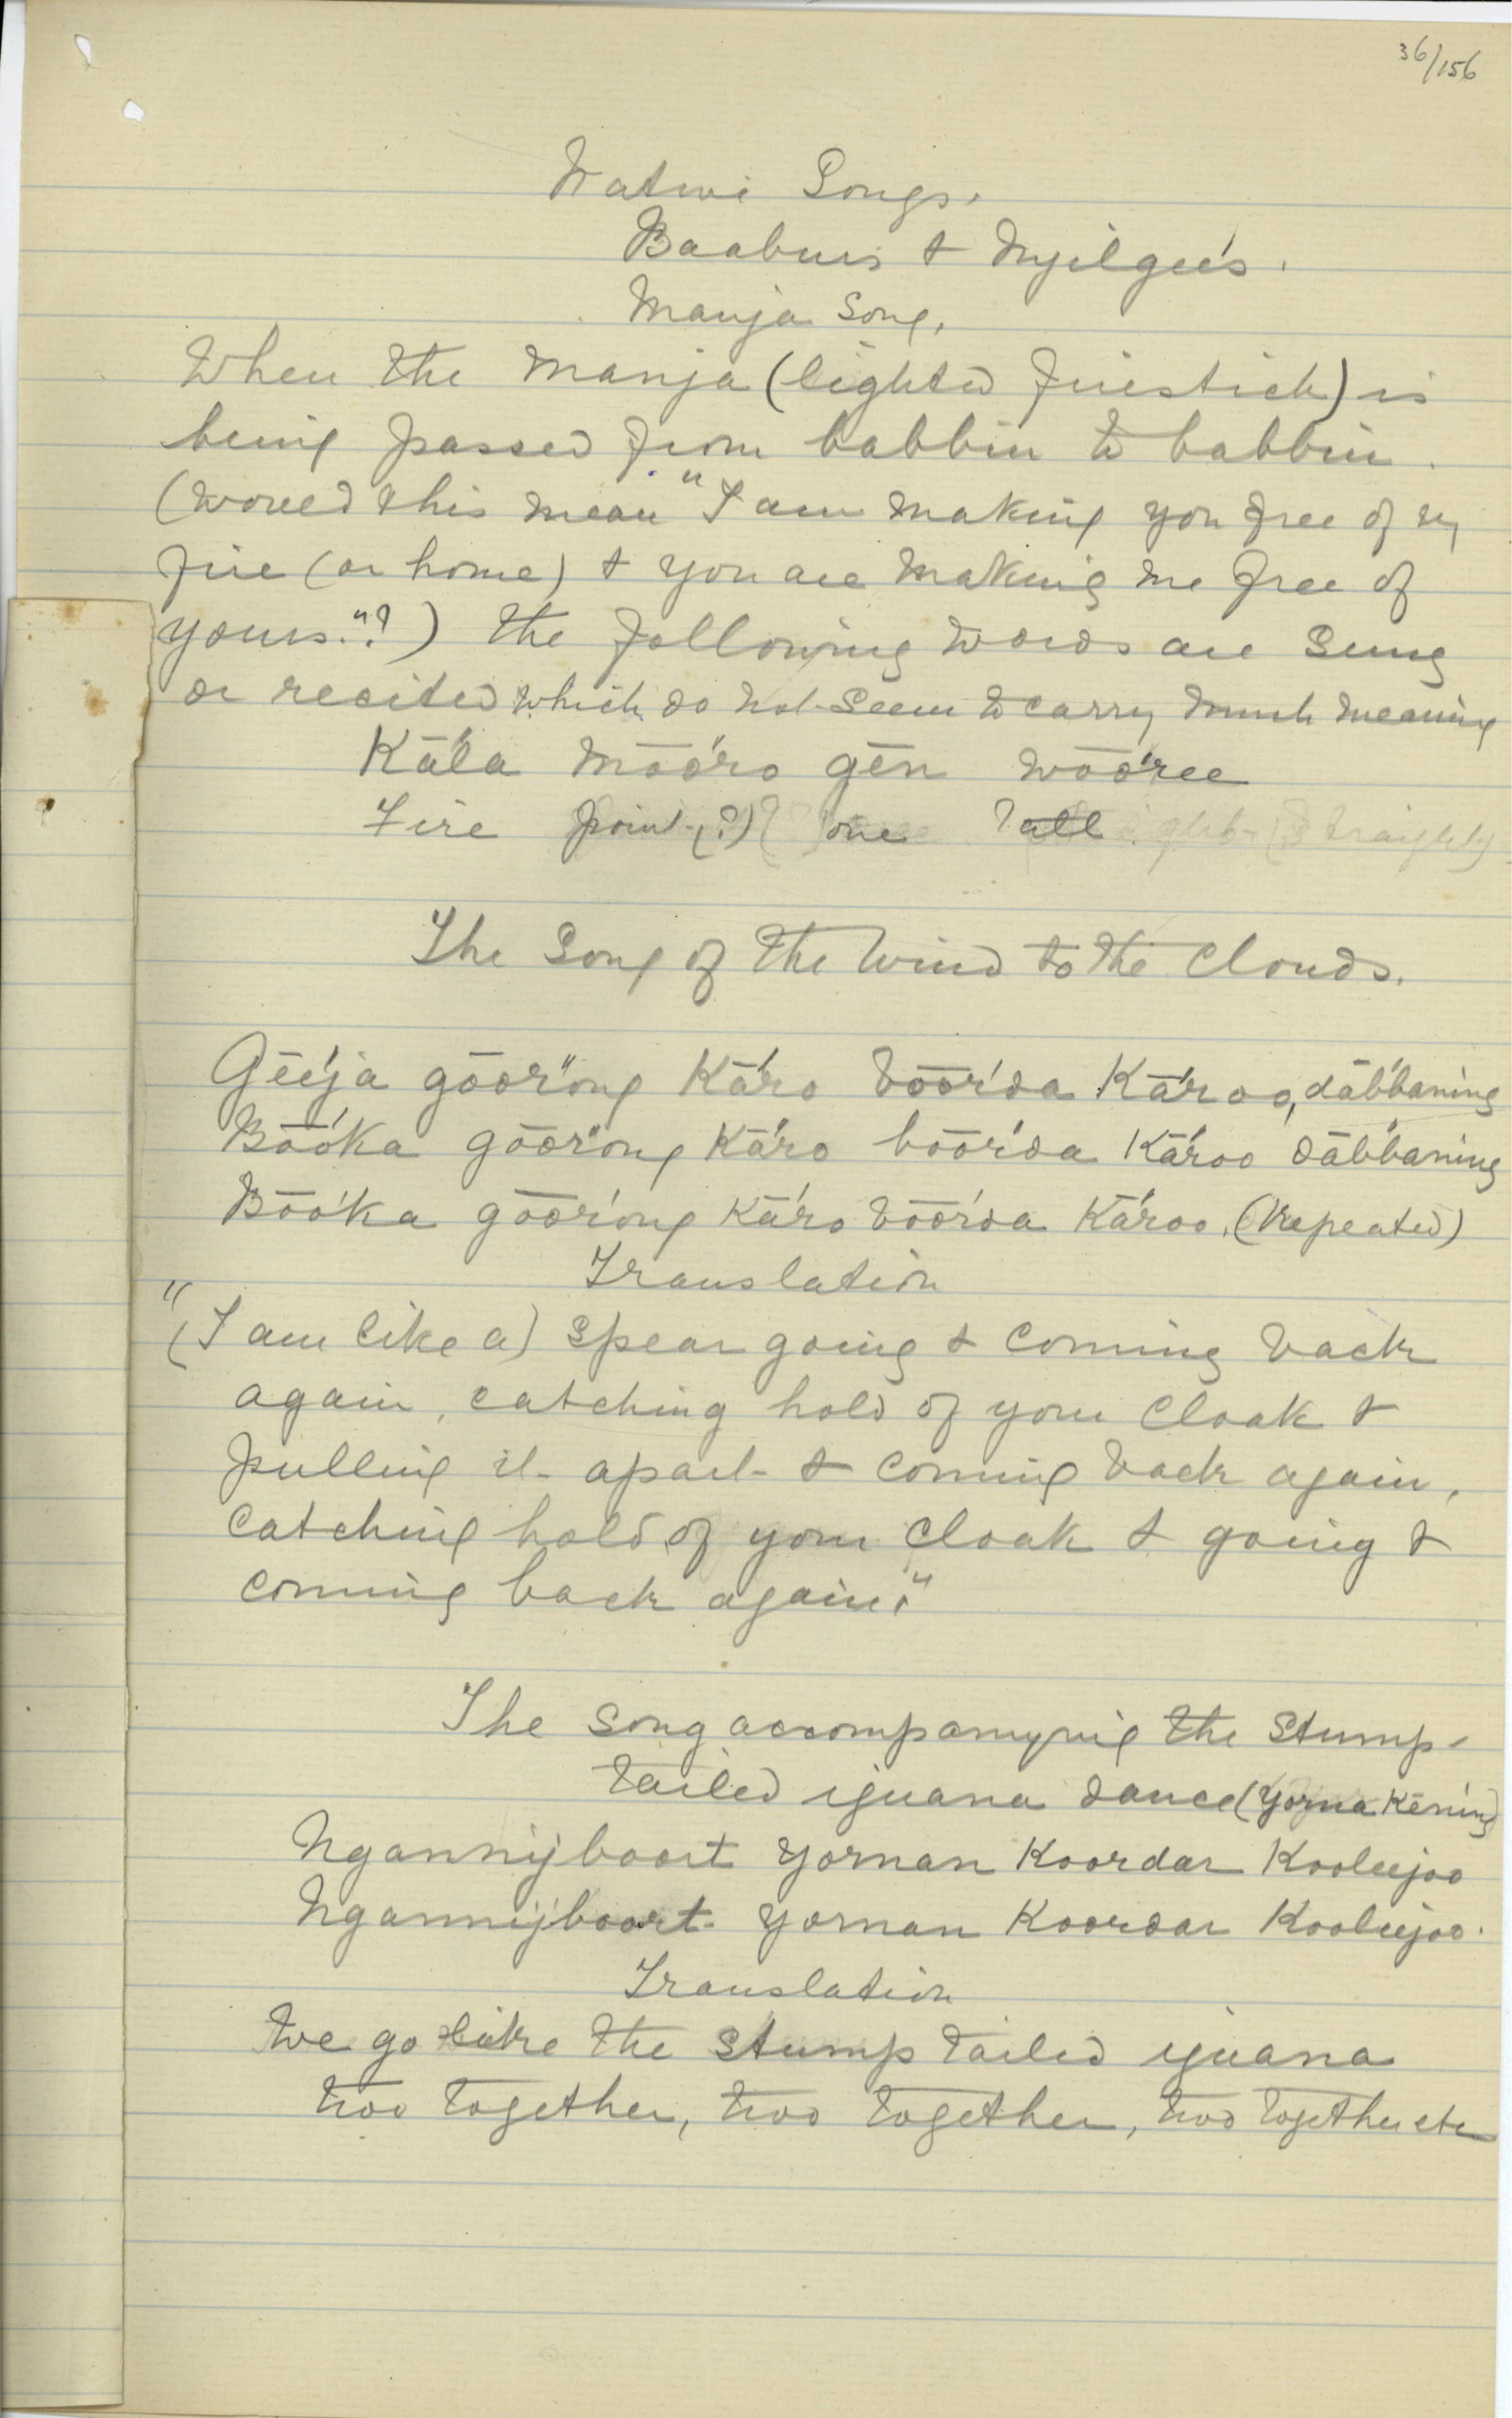 36/156
Native Songs.
Baabur's & Nyilgee's.
Manja Song.
When the Manja (lighted firestick) is
being passed from babbin to babbin.
(Would this mean "I am making you free of my
fire (or home) & you are making me free of
yours."?) the following words are sung
or recited which do not seem to carry much meaning
Kā'la mōō'ro gēn wōō'ree
Fire point (?) one ? all straight
The Song of the Wind to the Clouds.
Gēē'ja gōōr'ong kā'ro bōōr'da kā'roo, dāb'baning
Bōō'ka gōōr'ong kā'ro bōōr'da kā'roo dāb'baning
Bōō'ka gōōr'ong kā'ro bōōr'da kā'roo. (Repeated)
Translation
"(I am like a) spear going & coming back
again, catching hold of your cloak &
pulling it apart & coming back again,
catching hold of your cloak & going &
coming back again."
The song accompanying the stump-
tailed iguana dance (Yorna Kēning)
Ngannijboort yornan koordar kooleejoo
Ngannijboort yornan koordar kooleejoo.
Translation
We go like the stump tailed iguana
two together, two together, two together etc